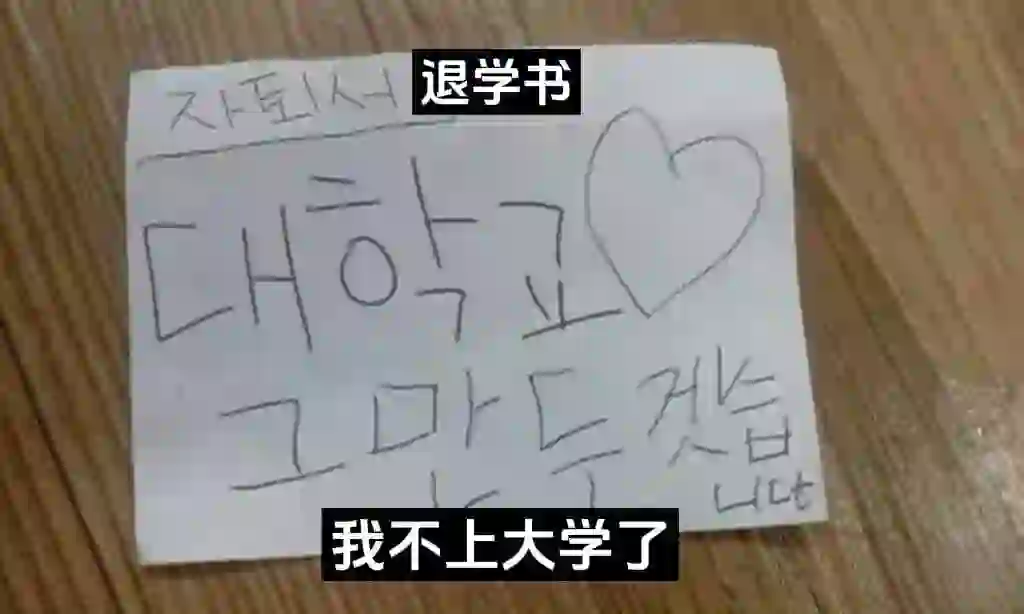 자퇴서
退学书
대학교
그만두겟습
니다
我不上大学了